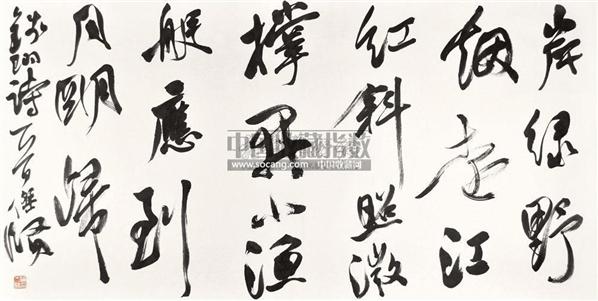 岸绿野
烟远江
红斜照微
撑開小漁
艇應到
月明歸
錢珝詩
中国收藏指数
www.socang.com 中国收藏网